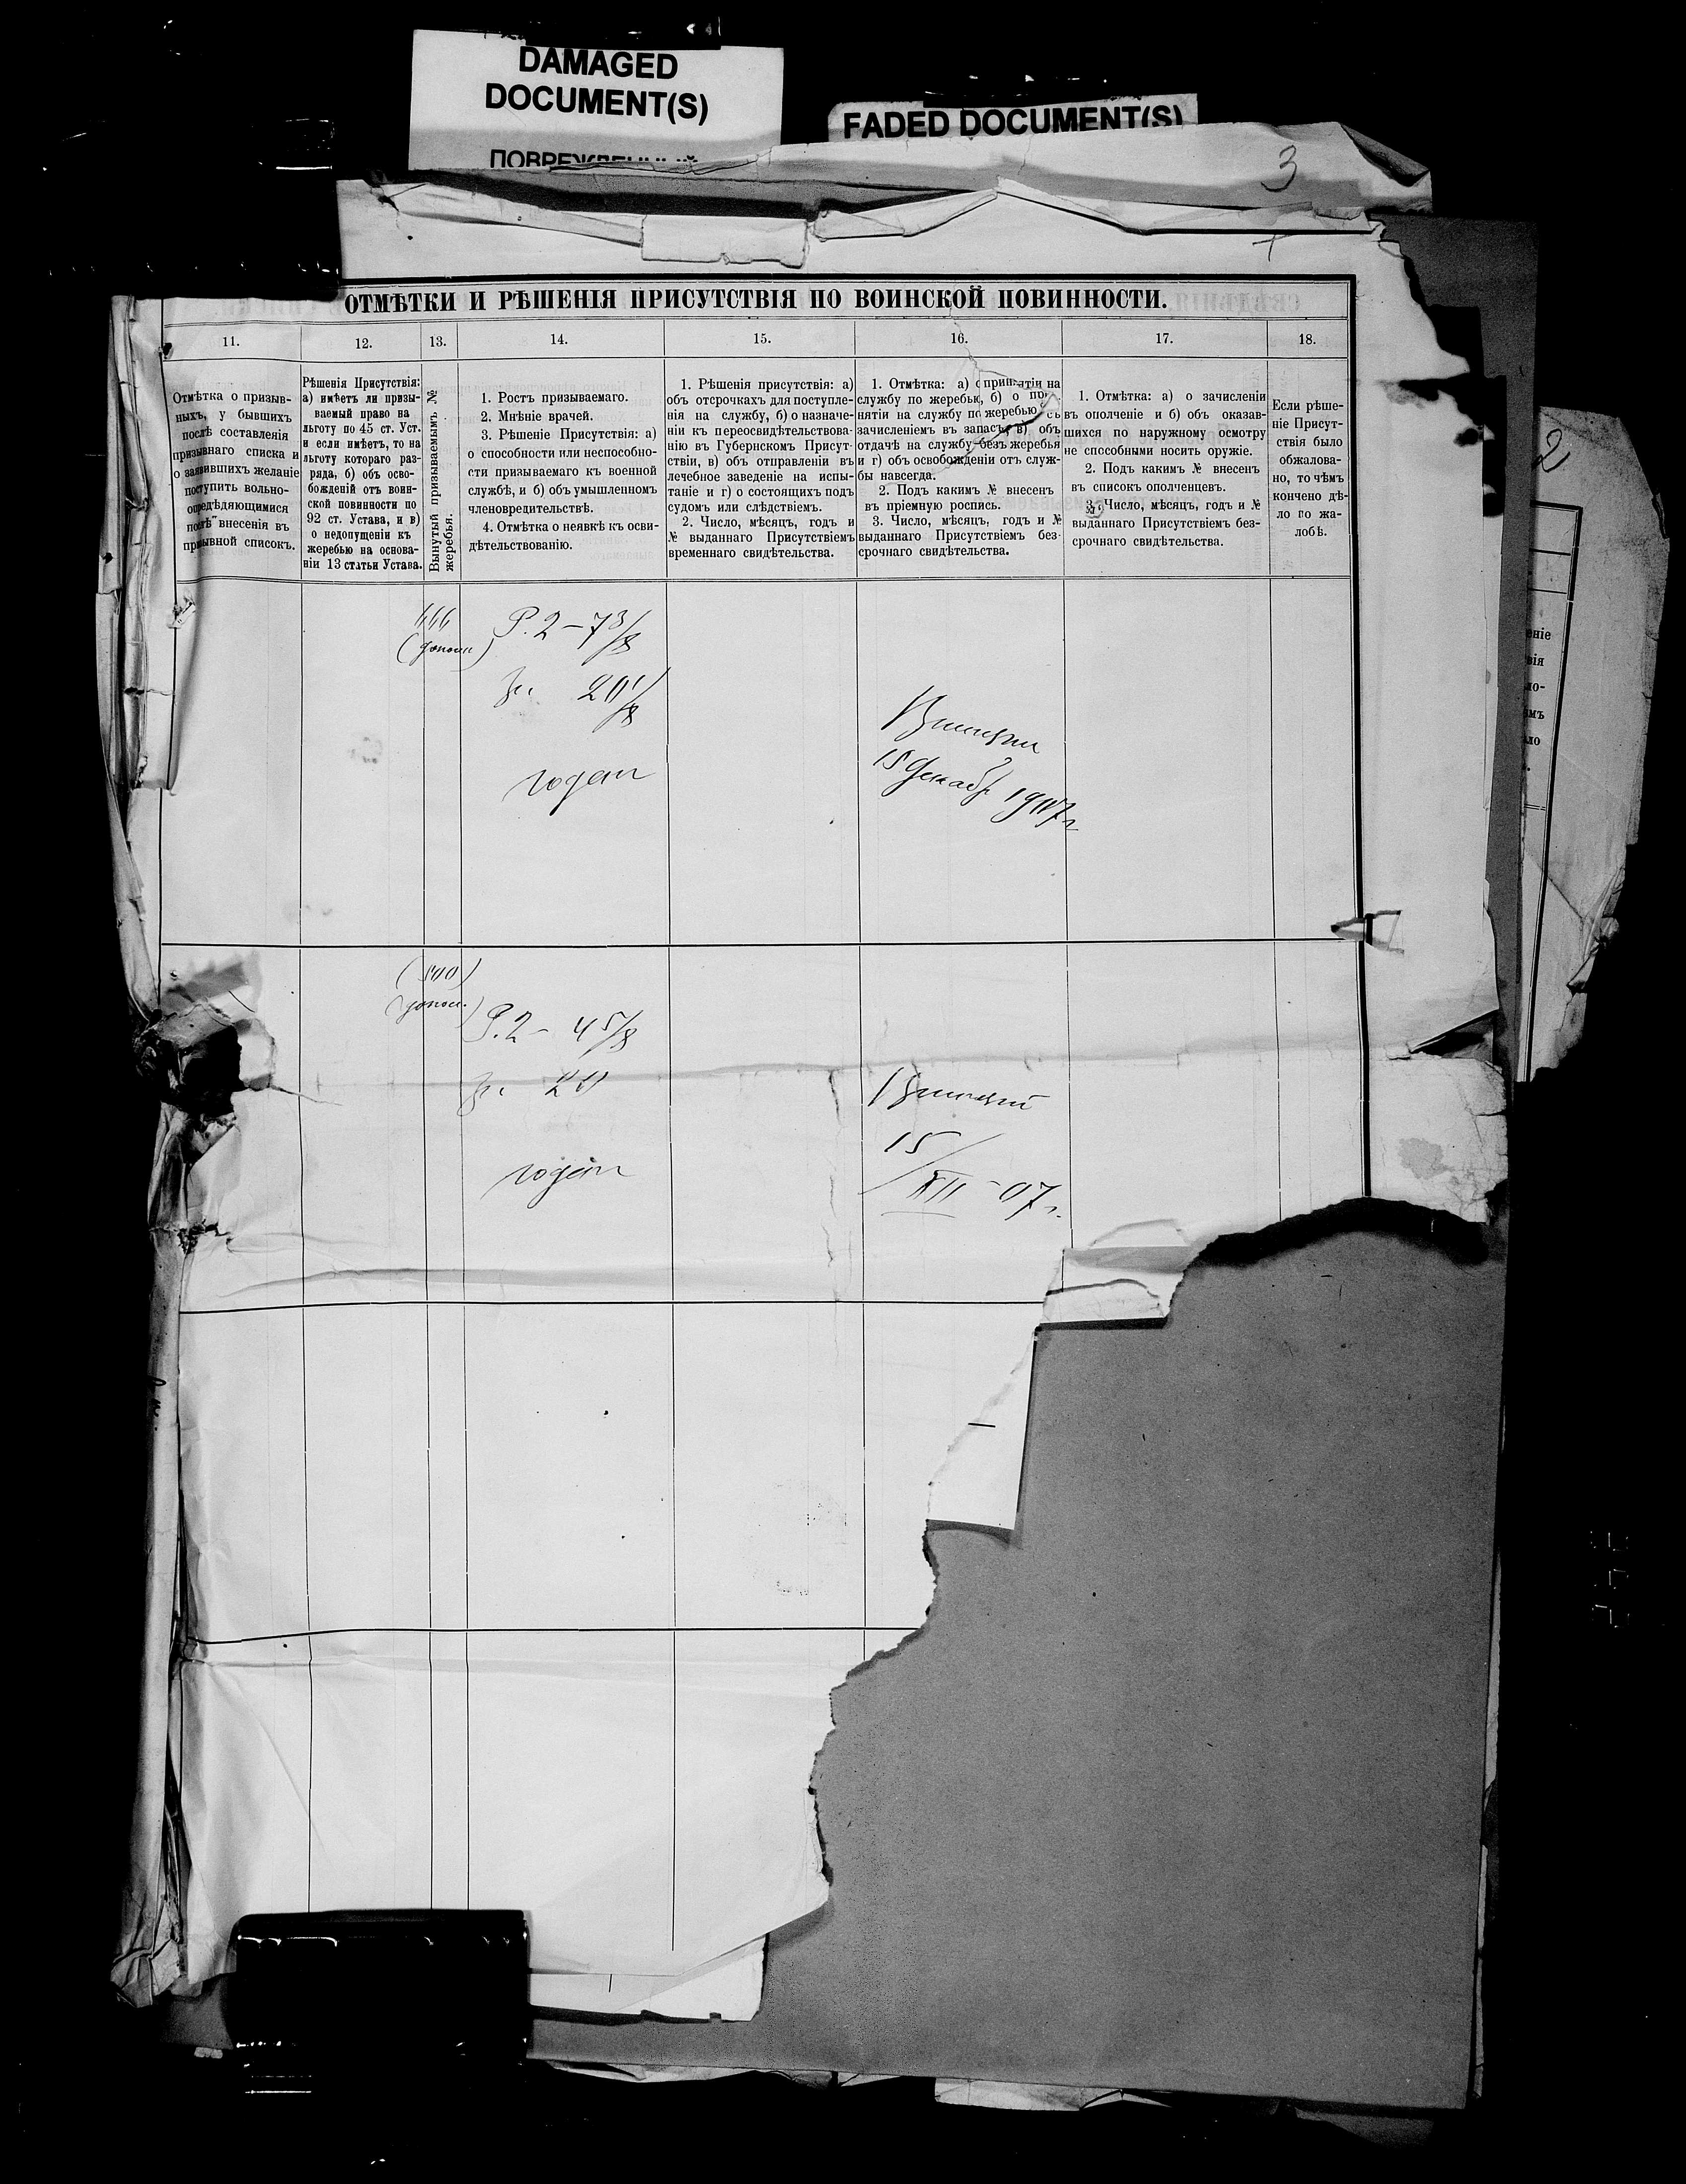 DAMAGED
DOCUMENT(S)
FADED DOCUMENT(S)
3
ОТМѢТКИ И РѢШЕНІЯ ПРИСУТСТВІЯ ПО ВОИНСКОЙ ПОВИННОСТИ.
11.
12.
13.
14.
15.
16.
17.
18.
Отмѣтка о призыв-
ныхъ, у бывшихъ
послѣ составленія
призывнаго списка и
о заявившихъ желаніе
поступить вольно-
опредѣдяющимися
послѣ внесенія въ
призывной списокъ.
Рѣшенія Присутствія:
а) имѣетъ ли призы-
ваемый право на
льготу по 45 ст. Уст.
и если имѣетъ, то на
льготу котораго раз-
ряда, б) объ осво-
божденій отъ воин-
ской повинности по
92 ст. Устава, и в)
о недопущеніи къ
жеребью на основа-
ніи 13 статьи Устава.
Вынутый призываемымъ №
жеребья.
1. Ростъ призываемаго.
2. Мнѣніе врачей.
3. Рѣшеніе Присутствія: а)
о способности или неспособно-
сти призываемаго къ военной
службѣ, и б) объ умышленномъ
членовредительствѣ.
4. Отмѣтка о неявкѣ къ осви-
дѣтельствованію.
1. Рѣшенія присутствія: а)
объ отсрочкахъ для поступле-
нія на службу, б) о назначе-
ніи къ переосвидѣтельствова-
нію въ Губернскомъ Присут-
ствіи, в) объ отправленіи въ
лечебное заведеніе на испы-
таніе и г) о состоящихъ подъ
судомъ или слѣдствіемъ.
2. Число, мѣсяцъ, годъ и
№ выданнаго Присутствіемъ
временнаго свидѣтельства.
1. Отмѣтка: а) о принятіи на
службу по жеребью, б) о при-
нятіи на службу по жеребью съ
зачисленіемъ въ запасъ, в) объ
отдачѣ на службу безъ жеребья
и г) объ освобожденіи отъ служ-
бы навсегда.
2. Подъ какимъ № внесенъ
въ пріемную роспись.
3. Число, мѣсяцъ, годъ и №
выданнаго Присутствіемъ без-
срочнаго свидѣтельства.
1. Отмѣтка: а) о зачисленіи
въ ополченіе и б) объ оказав-
шихся по наружному осмотру
не способными носить оружіе.
2. Подъ какимъ № внесенъ
въ списокъ ополченцевъ.
3. Число, мѣсяцъ, годъ и №
выданнаго Присутствіемъ без-
срочнаго свидѣтельства.
Если рѣше-
ніе Присут-
ствія было
обжалова-
но, то чѣмъ
кончено дѣ-
ло по жа-
лобѣ.
2
Р. 2 – 7 3/8
20 1/8
годенъ
15 Декабр. 1907 г
Р. 2 – 4 5/8
20
годенъ
15/XII – 07 г.